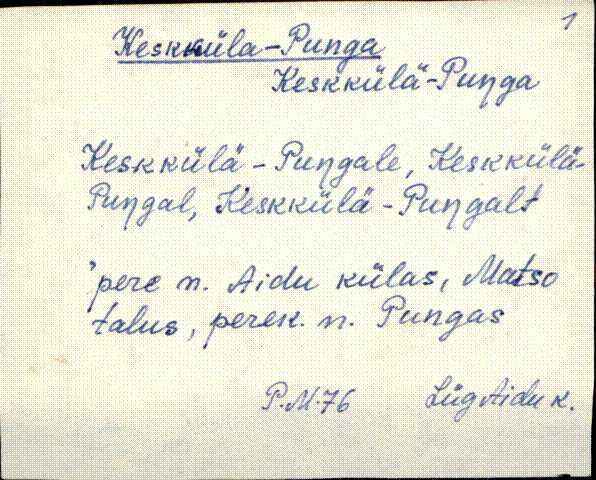 1
Keskküla-Punga
Keskkülä-Puŋga
Keskkülä-Puŋgale, Keskkülä-
Puŋgal, Keskkülä-Puŋgalt
"pere n. Aidu külas, Matso
talus, perek. n. Pungas
P.M.76 Lüg Aidu k.